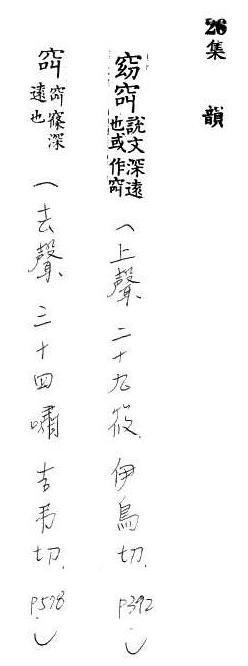 26集韻
窈窅說文深遠也或作窅(上聲、二十九筱、伊鳥切、P392、)
窅窅窱深遠也(去聲、三十四嘯、吉弔切、P578、)